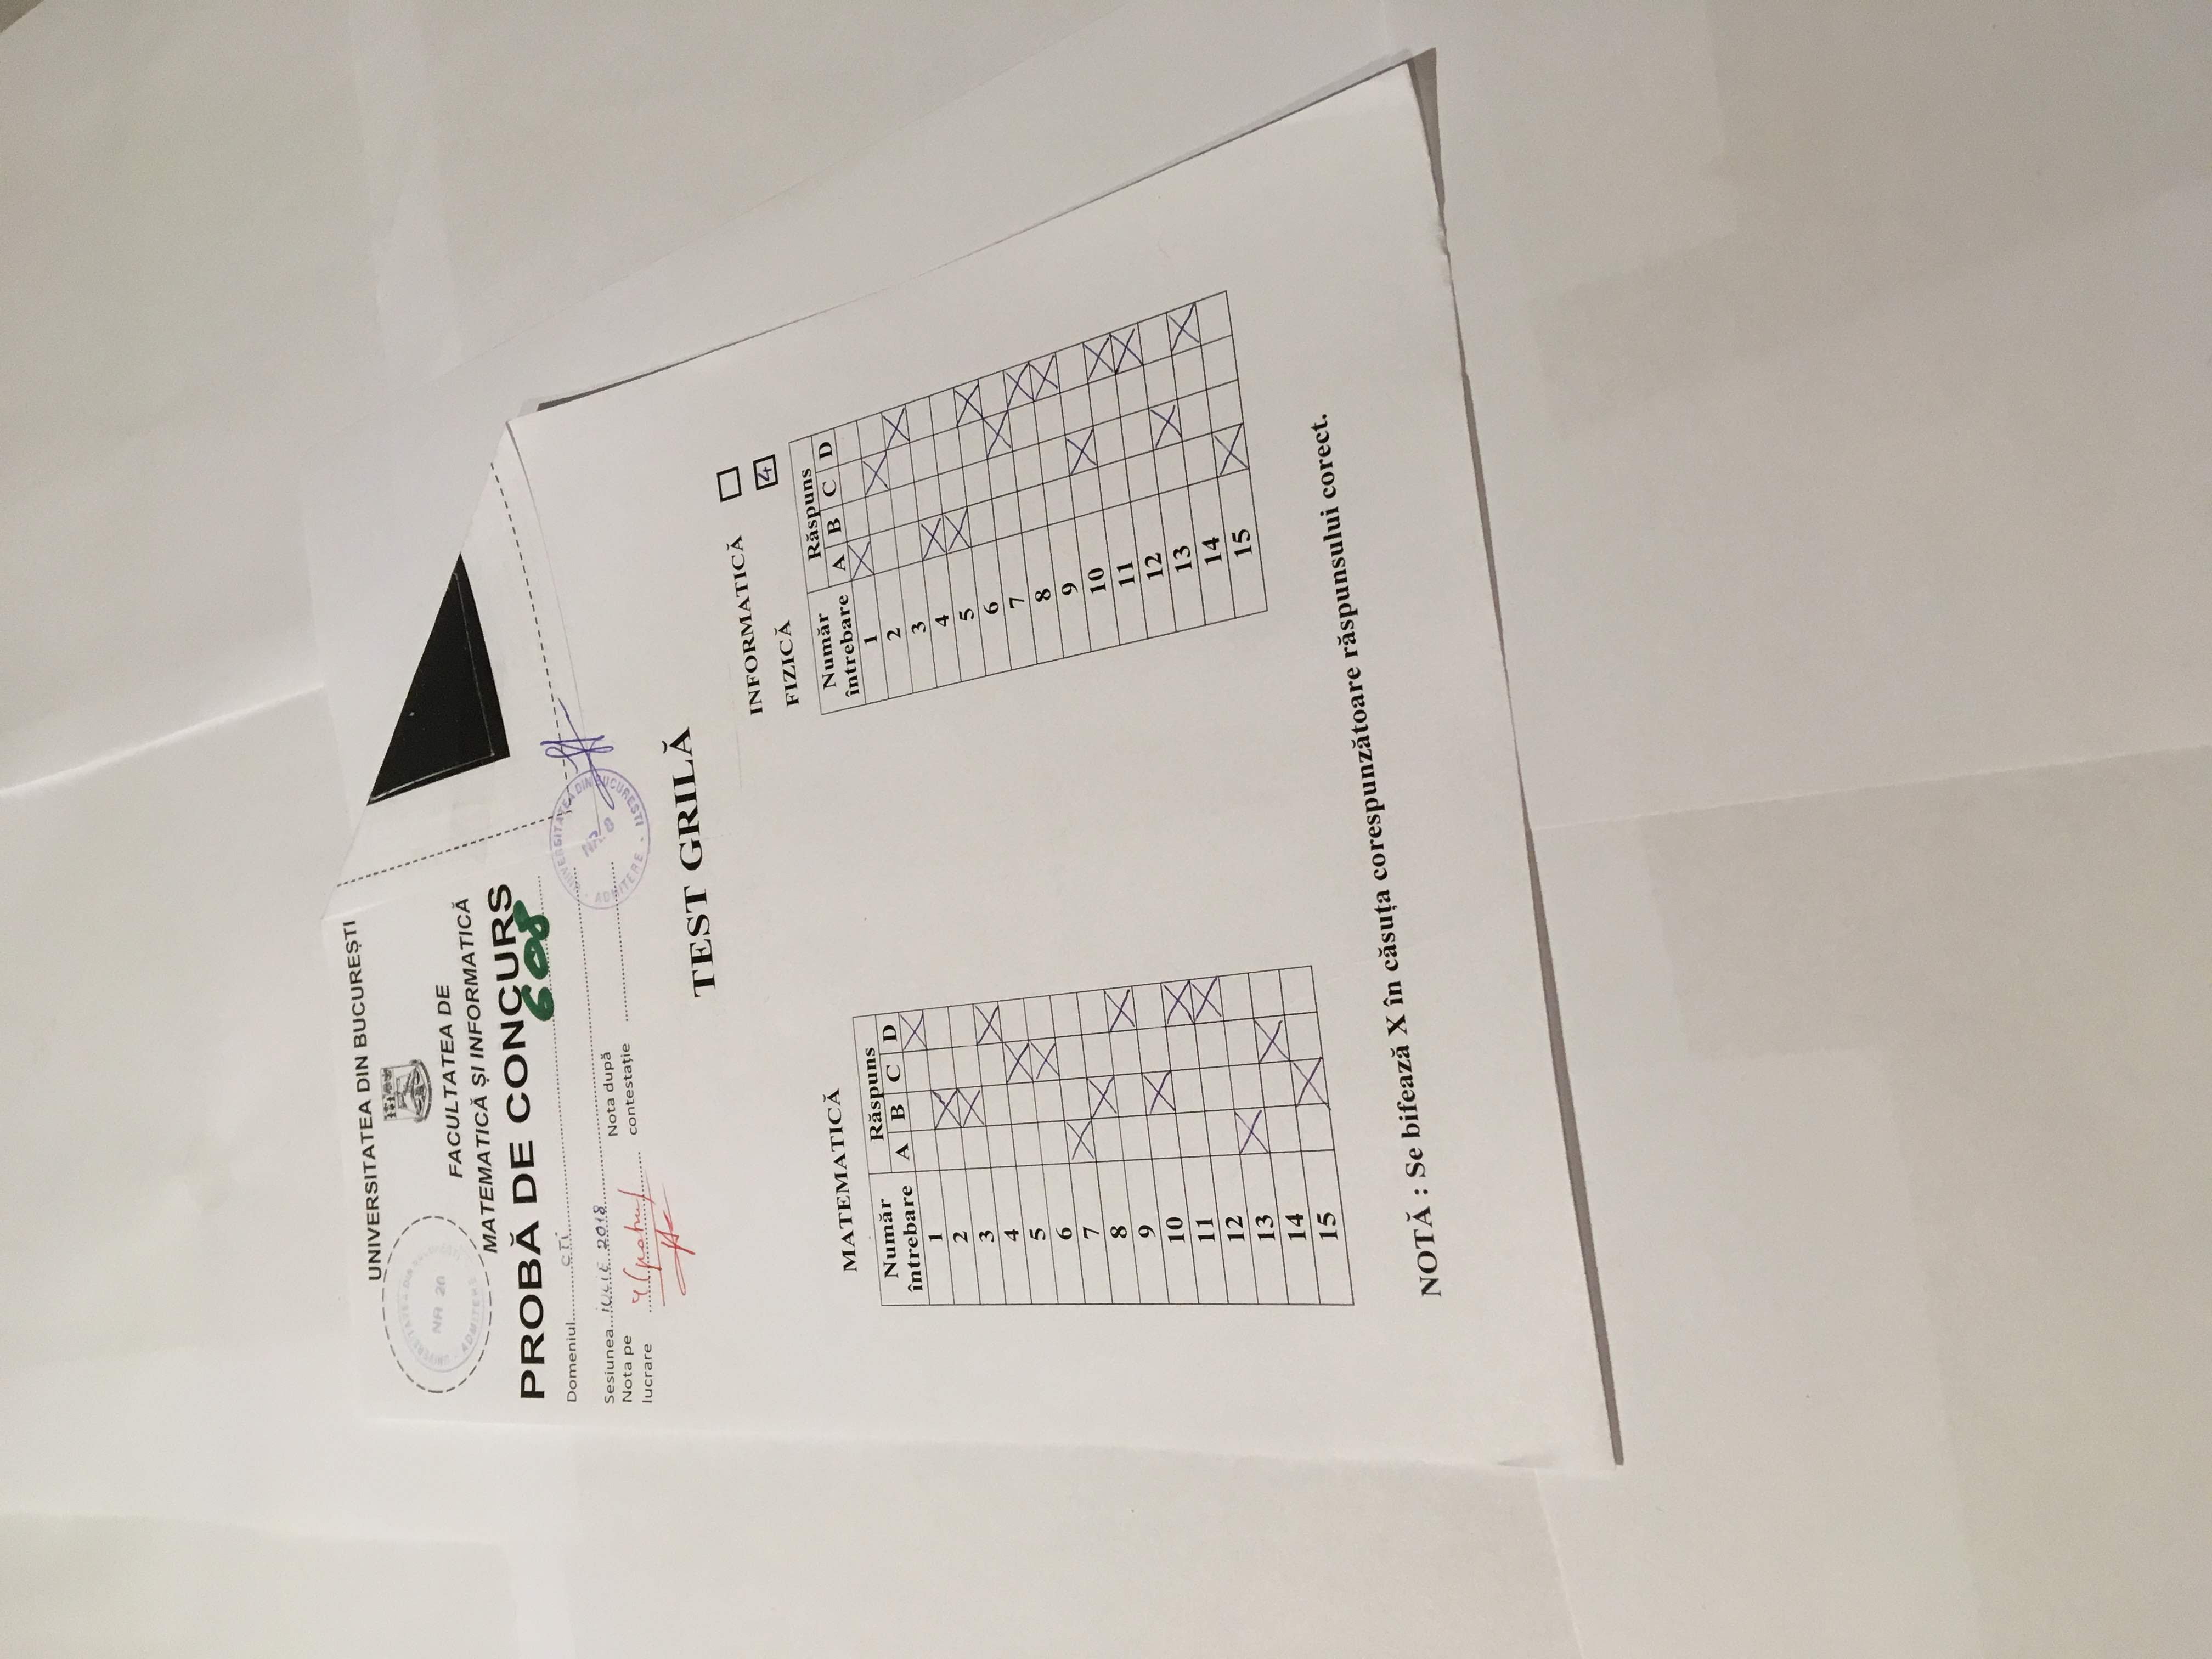 UNIVERSITATEA DIN BUCUREȘTI
UNIVERSITATEA DIN BUCUREȘTI
NR 20
ADMITERE
FACULTATEA DE
MATEMATICĂ ȘI INFORMATICĂ
PROBĂ DE CONCURS
608
Domeniul CTI
Sesiunea IULIE 2018
Nota pe lucrare 4 (patru)
Nota după contestație
UNIVERSITATEA DIN BUCUREȘTI
ADMITERE
TEST GRILĂ
INFORMATICĂ
FIZICĂ 4
MATEMATICĂ
Număr întrebare Răspuns
A B C D
1 X
2 X
3 X
4 X
5 X
6 X
7 X
8 X
9 X
10 X
11 X
12 X
13 X
14 X
15 X
Număr întrebare Răspuns
A B C D
1 X
2 X
3 X
4 X
5 X
6 X
7 X
8 X
9 X
10 X
11 X
12 X
13 X
14 X
15 X
NOTĂ : Se bifează X în căsuța corespunzătoare răspunsului corect.